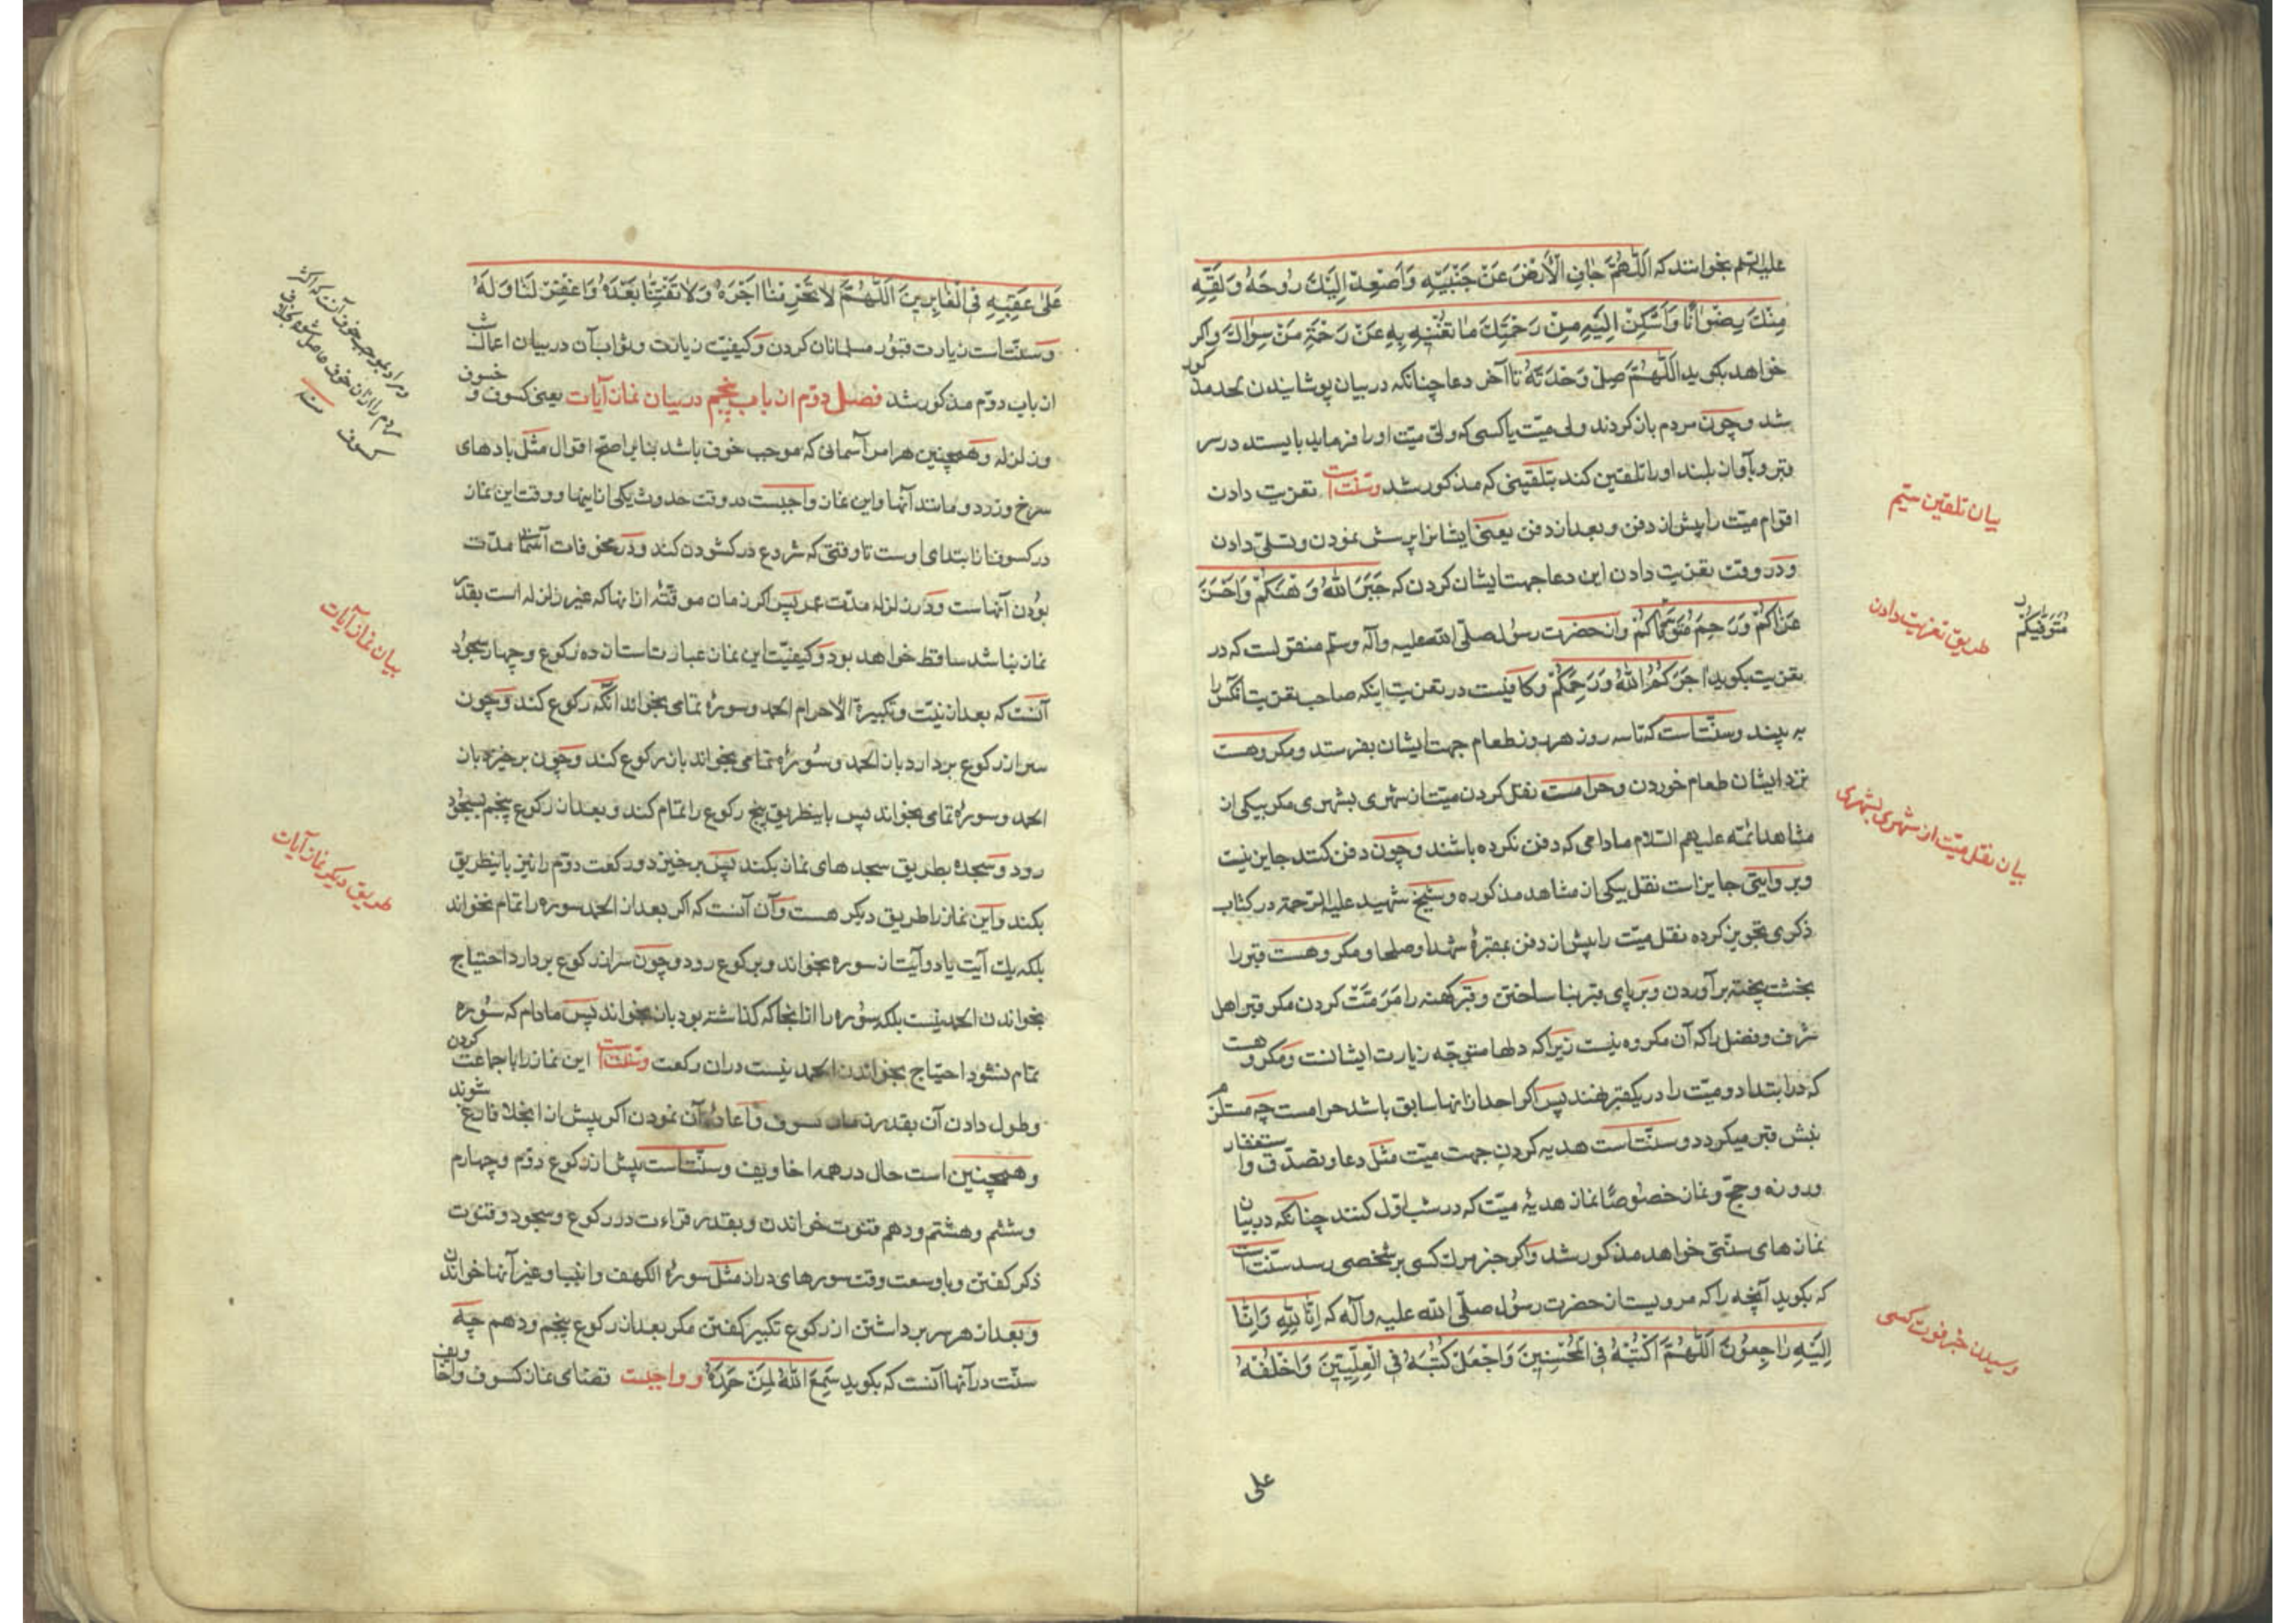 علیه السلم بخوانند که اَللّهُمَّ جافِ الْاَرْضَ عَنْ جَنْبَیْهِ وَاَصْعِدْ اِلَیْكَ رُوحَهُ وَلَقِّهِ
مِنْكَ رِضْوانًا وَاَسْكِنْ اِلَیْهِ مِنْ رَحْمَتِكَ ما تُغْنیهِ بِهِ عَنْ رَحْمَةِ مَنْ سِواكَ واکر
خواهد بکوید اَللّهُمَّ صِلْ وَحْدَتَهُ تا آخر دعا چنانکه در بیان پوشایندن لحد مذکور
شد وچون مردم باز کردند ولی میّت یا کسی که ولیّ میّت اورا فرماید بایستد در سر
قبر وبآواز بلند اورا تلقین کند بتلقینی که مذکور شد وسنّت است تعزیت دادن
اقوام میّت را پیش از دفن وبعد از دفن یعنی ایشانرا پرسش نمودن وتسلّی دادن
ودر وقت تعزیت دادن این دعا جهت ایشان کردن که جَبَرَ اللّهُ وَهْنَكُمْ وَاَحْسَنَ
عَزاكُمْ وَرَحِمَ مُتَوَفّاكُمْ واز حضرت رسُول صلّی الله علیه وآله وسلّم منقولست که در
تعزیت بکوید اجَرَكُمُ اللّهُ وَرَحِمَكُمْ وکافیست در تعزیت اینکه صاحب تعزیت آنکس را
به بیند وسنّت است که تا سه روز هر روز طعام جهت ایشان بفرستد ومکروهست
نزد ایشان طعام خوردن وحرامست نقل کردن میّت از شهری بشهری مکر بیکی از
مشاهد ائمّه علیهم السّلام مادامی که دفن نکرده باشند وچون دفن کنند جایز نیست
وبروایتی جایز است نقل بیکی از مشاهد مذکوره وشیخ شهید علیه الرّحمه در کتاب
ذکری تجویز کرده نقل میّت را پیش از دفن بمقبرهٔ شهدا وصلحا ومکروهست قبر را
بخشت پخته برآوردن وبر بالای قبر بنا ساختن وقبر کهنه را مَرَمّت کردن مکر قبر اهل
شرف وفضل را که آن مکروه نیست زیرا که دلها متوجّه زیارت ایشانست ومکروهست
که در ابتدا دو میّت را در یکقبر نهند پس اکر احد از انها سابق باشد حرامست چه مستلزم
نبش قبر میکردد وسنّت است هدیه کردن جهت میّت مثل دعا وتصدّق واستغفار
وروزه وحجّ ونماز خصُوصًا نماز هدیهٔ میّت که در شب اوّل کنند چنانکه در بیان
نماز های سنّتی خواهد مذکور شد واکر خبر مرك کسی بر شخصی رسد سنّت است
که بکوید آنچه را که مرویست از حضرت رسُول صلّی الله علیه وآله که اِنّا لِلّهِ وَاِنّا
اِلَیْهِ راجِعُونَ اَللّهُمَّ اكْتُبْهُ فِی الْمُحْسِنینَ وَاجْعَلْ كُتُبَهُ فِی الْعِلِّیّینَ وَاخْلُفْهُ
علی
بیان تلقین سیّم
طریق تعزیت دادن
مُتَوَفّیکُمْ
بیان نقل میّت از شهری بشهری
رسیدن خبر فوت کسی
عَلی عَقِبِهِ فِی الْغابِرینَ اَللّهُمَّ لا تَحْرِمْنا اَجْرَهُ وَلا تَفْتِنّا بَعْدَهُ وَاغْفِرْ لَنا وَلَهُ
وسنّت است زیارت قبُور مسلمانان کردن وکیفیّت زیارت وثواب آن در بیان اعمال ثالث
از باب دوّم مذکور شد فصل دوّم از باب پنجم در بیان نماز آیات یعنی کسوف وخسوف
وزلزله وهمچنین هر امر آسمانی که موجب خوف باشد بنابر اصحّ اقوال مثل بادهای
سرخ وزرد ومانند آنها واین نماز واجبست در وقت حدوث یکی از اینها ووقت این نماز
در کسوف از ابتدای اوست تا وقتی که شروع در کشودن کند ودر مخوفات آسمانی مدّت
بودن آنهاست ودر زلزله مدّت عمر پس اکر زمان موقّتهٔ از انها که غیر زلزله است بقدر
نماز نباشد ساقط خواهد بود وکیفیّت این نماز عبارتست از ده رکوع وچهار سجُود
آنست که بعد از نیّت وتکبیرة الاحرام الحمد وسورهٔ تمامی بخواند آنکه رکوع کند وچون
سر از رکوع بردارد باز الحمد وسُورهٔ تمامی بخواند باز رکوع کند وچون برخیزد باز
الحمد وسورهٔ تمامی بخواند پس باینطریق پنج رکوع را تمام کند وبعد از رکوع پنجم بسجُود
رود وسجده بطریق سجده های نماز بکند پس برخیزد ورکعت دوّم را نیز باینطریق
بکند واین نماز را طریق دیکر هست وآن آنست که اکر بعد از الحمد سوره را تمام نخواند
بلکه یك آیت یا دو آیت از سوره بخواند وبرکوع رود وچون سر از رکوع بردارد احتیاج
بخواندن الحمد نیست بلکه سُوره را از انجا که کذاشته بود باز بخواند پس مادام که سُوره
تمام نشود احتیاج بخواندن الحمد نیست در ان رکعت وسنّت است این نماز را با جماعت کردن
وطول دادن آن بقدر زمان کسوف واعادهٔ آن نمودن اکر پیش از انجلا فارغ شوند
وهمچنین است حال در همه اخاویف وسنّت است پیش از رکوع دوّم وچهارم
وششم وهشتم ودهم قنوت خواندن وبقدر قراءت در رکوع وسجود وقنوت
ذکر کفتن وبا وسعت وقت سورهای دراز مثل سورهٔ الکهف وانبیا وغیر آنها خواندن
وبعد از هر سر برداشتن از رکوع تکبیر کفتن مکر بعد از رکوع پنجم ودهم چه
سنّت در آنها آنست که بکوید سَمِعَ اللّهُ لِمَنْ حَمِدَهُ وواجبست قضای نماز کسوف واخاویف
مراد بموجب خوف آن که اکثر
مردم را از ان خوف حاصل شود بخلاف
کسوف
منه
بیان نماز آیات
طریق دیکر نماز آیات